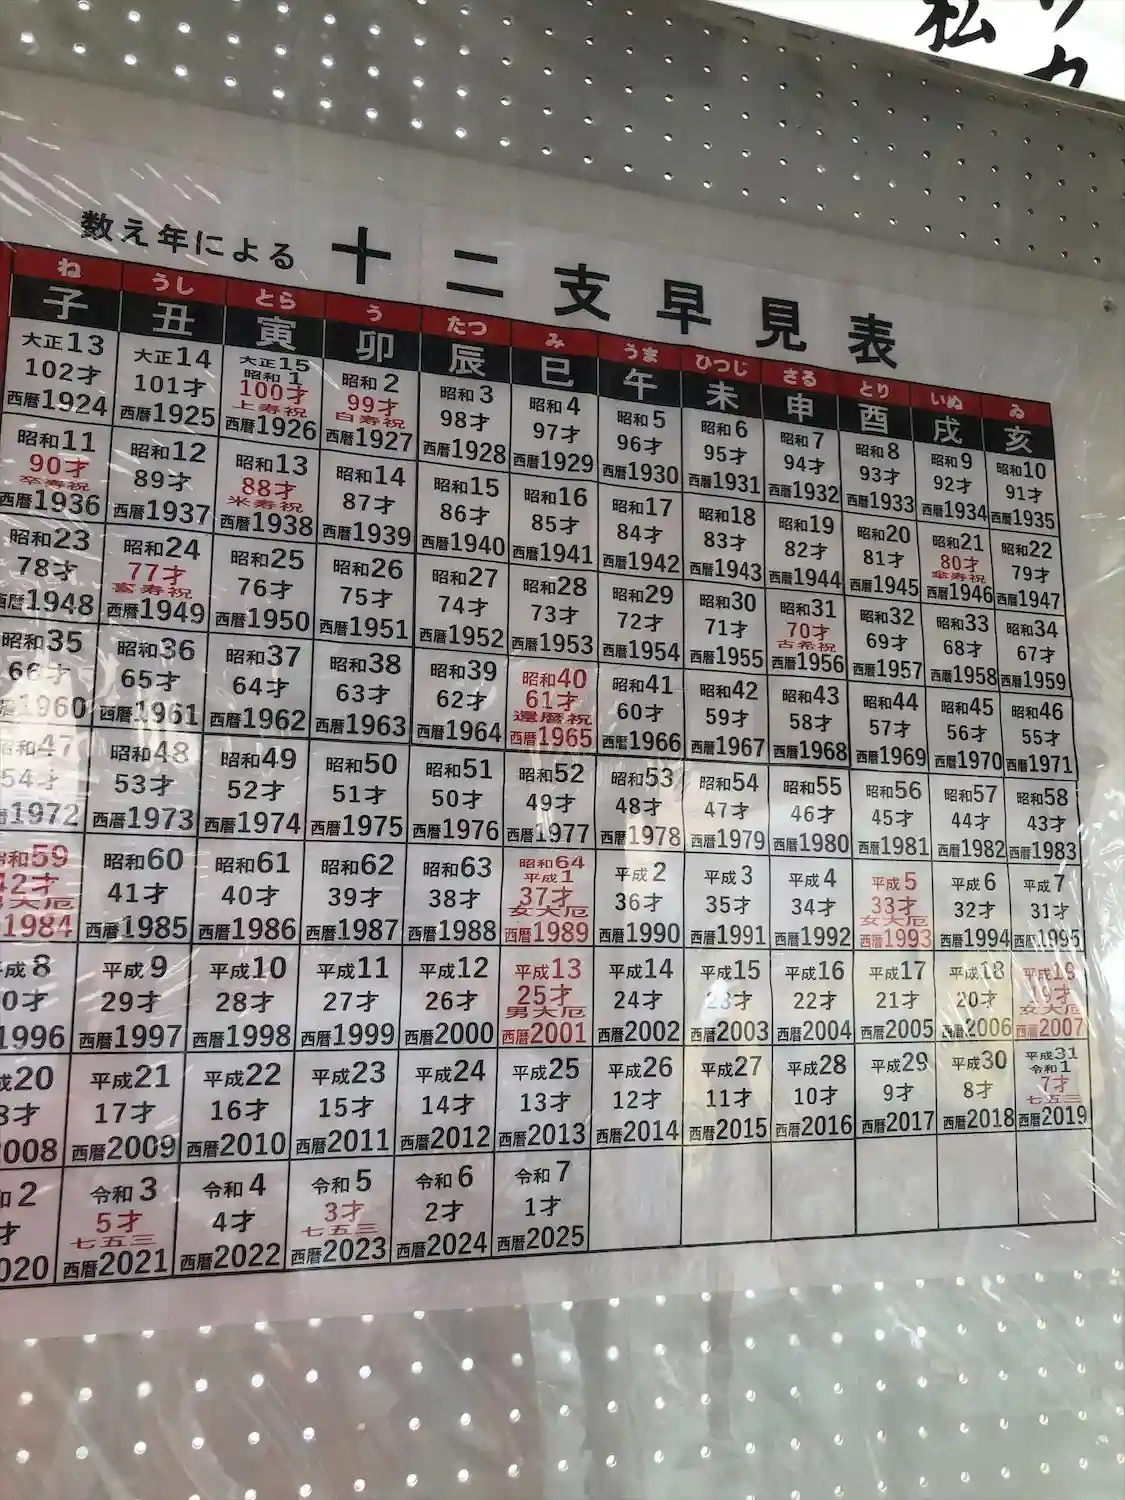 数え年による 十二支早見表
ね うし とら う たつ み うま ひつじ さる とり いぬ ゐ
子 丑 寅 卯 辰 巳 午 未 申 酉 戌 亥
大正13 大正14 大正15 昭和2 昭和3 昭和4 昭和5 昭和6 昭和7 昭和8 昭和9 昭和10
昭和1
102才 101才 100才 99才 98才 97才 96才 95才 94才 93才 92才 91才
上寿祝 白寿祝
西暦1924 西暦1925 西暦1926 西暦1927 西暦1928 西暦1929 西暦1930 西暦1931 西暦1932 西暦1933 西暦1934 西暦1935
昭和11 昭和12 昭和13 昭和14 昭和15 昭和16 昭和17 昭和18 昭和19 昭和20 昭和21 昭和22
90才 89才 88才 87才 86才 85才 84才 83才 82才 81才 80才 79才
卒寿祝 米寿祝 傘寿祝
西暦1936 西暦1937 西暦1938 西暦1939 西暦1940 西暦1941 西暦1942 西暦1943 西暦1944 西暦1945 西暦1946 西暦1947
昭和23 昭和24 昭和25 昭和26 昭和27 昭和28 昭和29 昭和30 昭和31 昭和32 昭和33 昭和34
78才 77才 76才 75才 74才 73才 72才 71才 70才 69才 68才 67才
喜寿祝 古希祝
西暦1948 西暦1949 西暦1950 西暦1951 西暦1952 西暦1953 西暦1954 西暦1955 西暦1956 西暦1957 西暦1958 西暦1959
昭和35 昭和36 昭和37 昭和38 昭和39 昭和40 昭和41 昭和42 昭和43 昭和44 昭和45 昭和46
66才 65才 64才 63才 62才 61才 60才 59才 58才 57才 56才 55才
還暦祝
暦1960 西暦1961 西暦1962 西暦1963 西暦1964 西暦1965 西暦1966 西暦1967 西暦1968 西暦1969 西暦1970 西暦1971
昭和47 昭和48 昭和49 昭和50 昭和51 昭和52 昭和53 昭和54 昭和55 昭和56 昭和57 昭和58
54才 53才 52才 51才 50才 49才 48才 47才 46才 45才 44才 43才
暦1972 西暦1973 西暦1974 西暦1975 西暦1976 西暦1977 西暦1978 西暦1979 西暦1980 西暦1981 西暦1982 西暦1983
和59 昭和60 昭和61 昭和62 昭和63 昭和64 平成2 平成3 平成4 平成5 平成6 平成7
平成1
42才 41才 40才 39才 38才 37才 36才 35才 34才 33才 32才 31才
男大厄 女大厄 女大厄
1984 西暦1985 西暦1986 西暦1987 西暦1988 西暦1989 西暦1990 西暦1991 西暦1992 西暦1993 西暦1994 西暦1995
成8 平成9 平成10 平成11 平成12 平成13 平成14 平成15 平成16 平成17 平成18 平成19
0才 29才 28才 27才 26才 25才 24才 23才 22才 21才 20才 19才
男大厄 女大厄
1996 西暦1997 西暦1998 西暦1999 西暦2000 西暦2001 西暦2002 西暦2003 西暦2004 西暦2005 西暦2006 西暦2007
成20 平成21 平成22 平成23 平成24 平成25 平成26 平成27 平成28 平成29 平成30 平成31
令和1
8才 17才 16才 15才 14才 13才 12才 11才 10才 9才 8才 7才
七五三
008 西暦2009 西暦2010 西暦2011 西暦2012 西暦2013 西暦2014 西暦2015 西暦2016 西暦2017 西暦2018 西暦2019
和2 令和3 令和4 令和5 令和6 令和7
才 5才 4才 3才 2才 1才
七五三 七五三
020 西暦2021 西暦2022 西暦2023 西暦2024 西暦2025